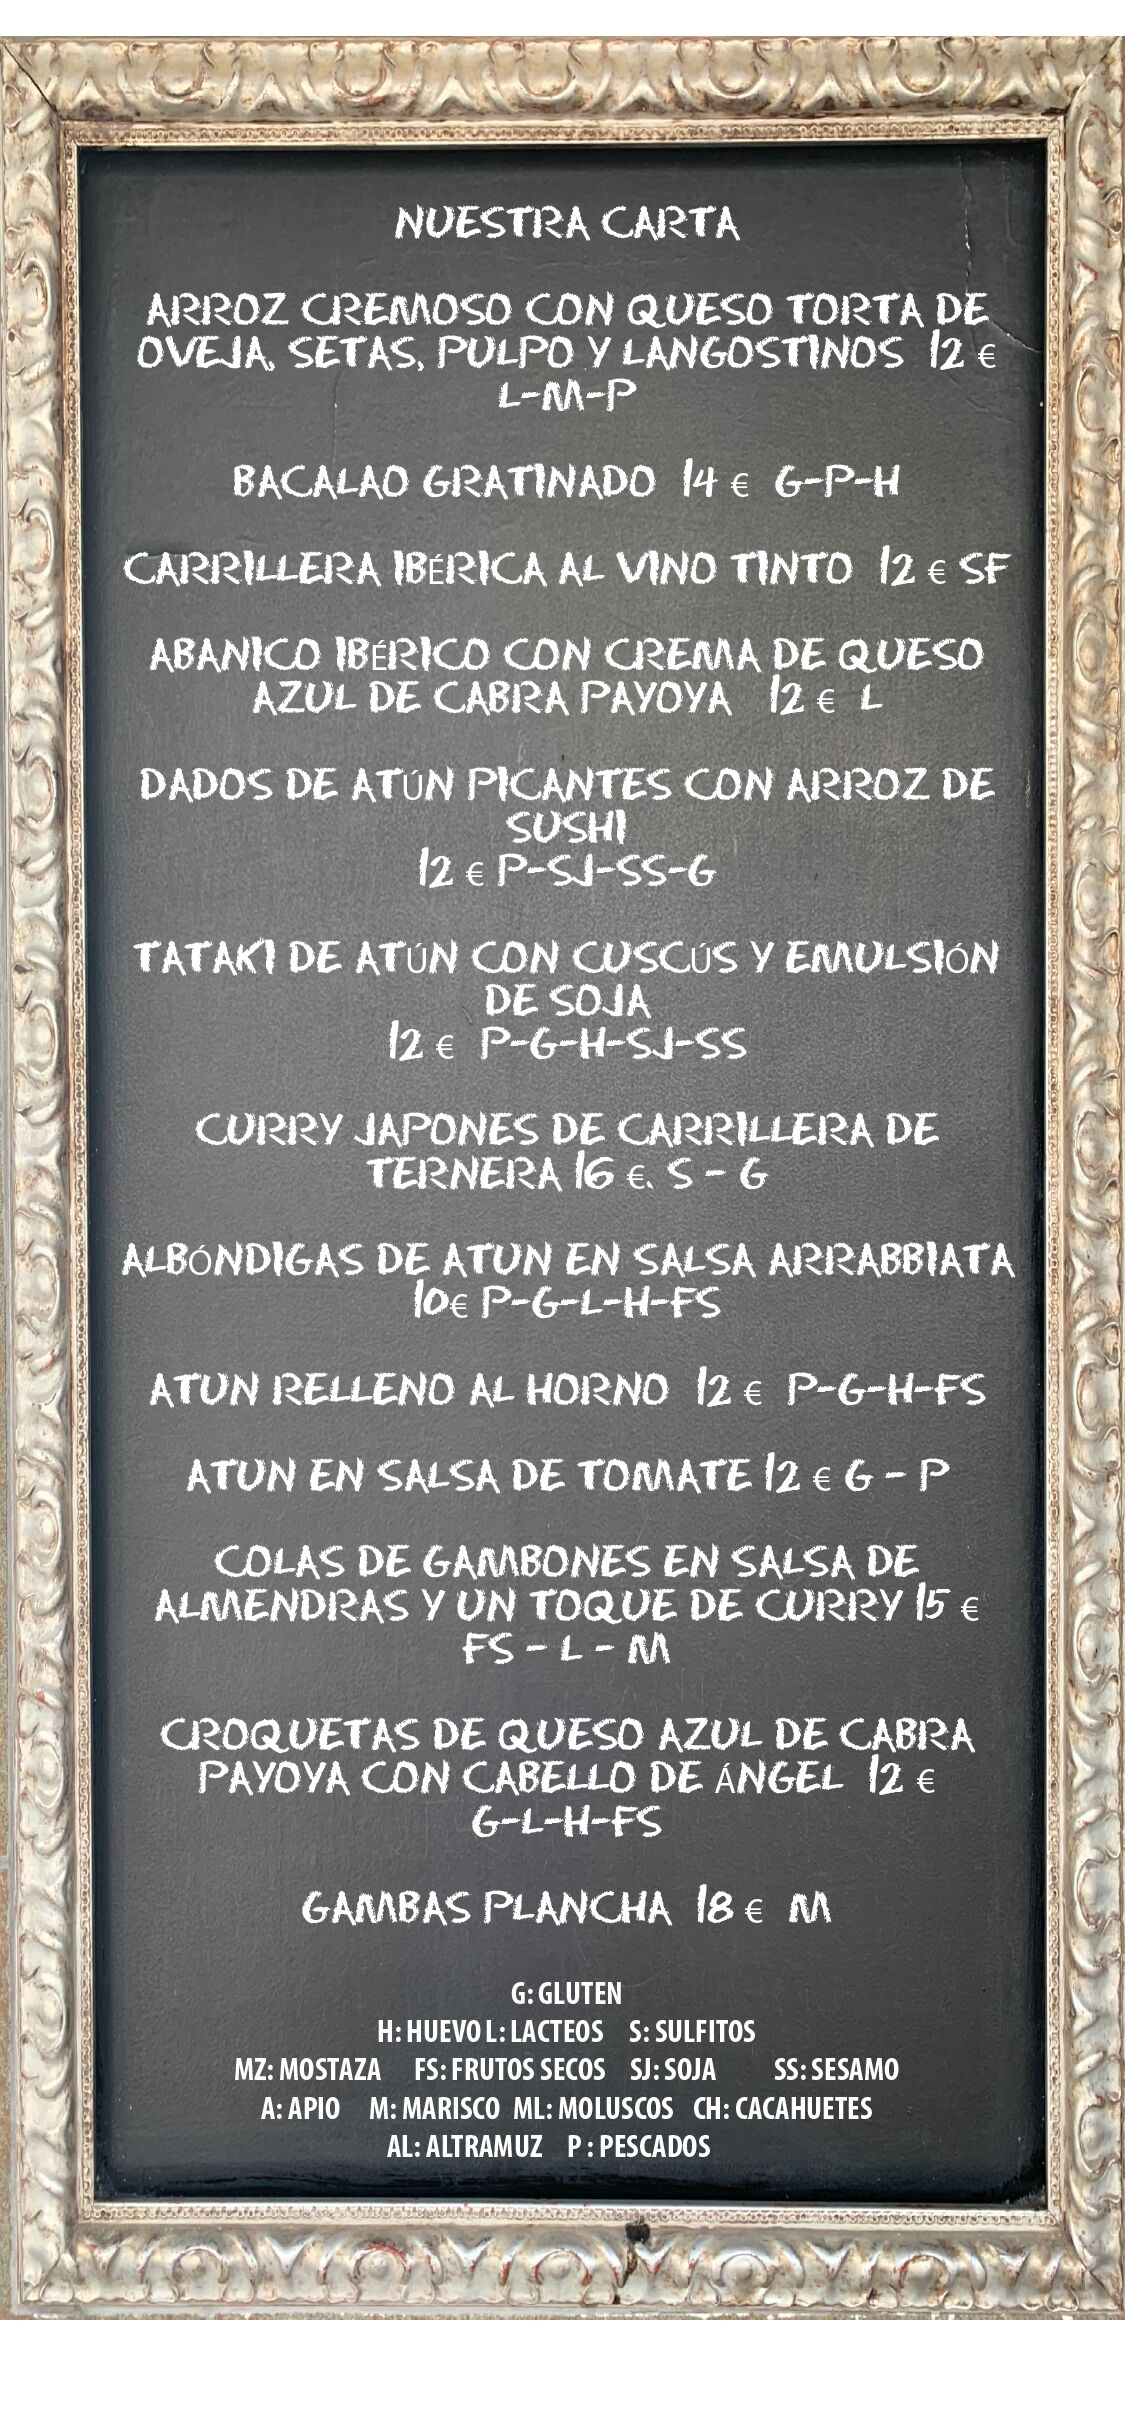 NUESTRA CARTA
ARROZ CREMOSO CON QUESO TORTA DE
OVEJA, SETAS, PULPO Y LANGOSTINOS 12 €
L-M-P
BACALAO GRATINADO 14 € G-P-H
CARRILLERA IBÉRICA AL VINO TINTO 12 € SF
ABANICO IBÉRICO CON CREMA DE QUESO
AZUL DE CABRA PAYOYA 12 € L
DADOS DE ATÚN PICANTES CON ARROZ DE
SUSHI
12 € P-SJ-SS-G
TATAKI DE ATÚN CON CUSCÚS Y EMULSIÓN
DE SOJA
12 € P-G-H-SJ-SS
CURRY JAPONES DE CARRILLERA DE
TERNERA 16 €. S - G
ALBÓNDIGAS DE ATUN EN SALSA ARRABBIATA
10€ P-G-L-H-FS
ATUN RELLENO AL HORNO 12 € P-G-H-FS
ATUN EN SALSA DE TOMATE 12 € G - P
COLAS DE GAMBONES EN SALSA DE
ALMENDRAS Y UN TOQUE DE CURRY 15 €
FS - L - M
CROQUETAS DE QUESO AZUL DE CABRA
PAYOYA CON CABELLO DE ÁNGEL 12 €
G-L-H-FS
GAMBAS PLANCHA 18 € M
G: GLUTEN
H: HUEVO L: LACTEOS S: SULFITOS
MZ: MOSTAZA FS: FRUTOS SECOS SJ: SOJA SS: SESAMO
A: APIO M: MARISCO ML: MOLUSCOS CH: CACAHUETES
AL: ALTRAMUZ P : PESCADOS